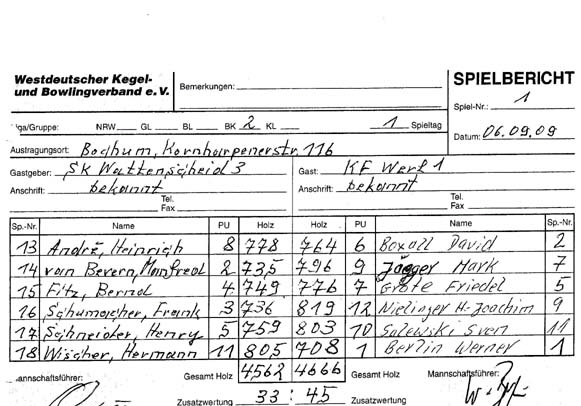 Westdeutscher Kegel-
und Bowlingverband e. V.
Bemerkungen:
SPIELBERICHT
Spiel-Nr.: 1
iga/Gruppe: NRW GL BL BK 2 KL 1 Spieltag
Datum: 06.09.09
Austragungsort: Bochum, Kornharpenerstr. 116
Gastgeber: SK Wattenscheid 3 Gast: KF Werl 1
Anschrift: bekannt Anschrift: bekannt
Tel. Tel.
Fax Fax
Sp.-Nr. Name PU Holz Holz PU Name Sp.-Nr.
13 André, Heinrich 8 778 764 6 Boxall David 2
14 van Bevern, Manfred 2 735 796 9 Jäeger Mark 7
15 Fitz, Bernd 4 749 776 7 Grote Friedel 5
16 Schumacher, Frank 3 736 819 12 Nielinger H-Joachim 9
17 Schneider, Henry 5 759 803 10 Salewski Sven 11
18 Wischer, Hermann 11 805 708 1 Berlin Werner 1
annschaftsführer: Gesamt Holz 4562 4666 Gesamt Holz Mannschaftsführer:
Zusatzwertung 33 : 45 Zusatzwertung